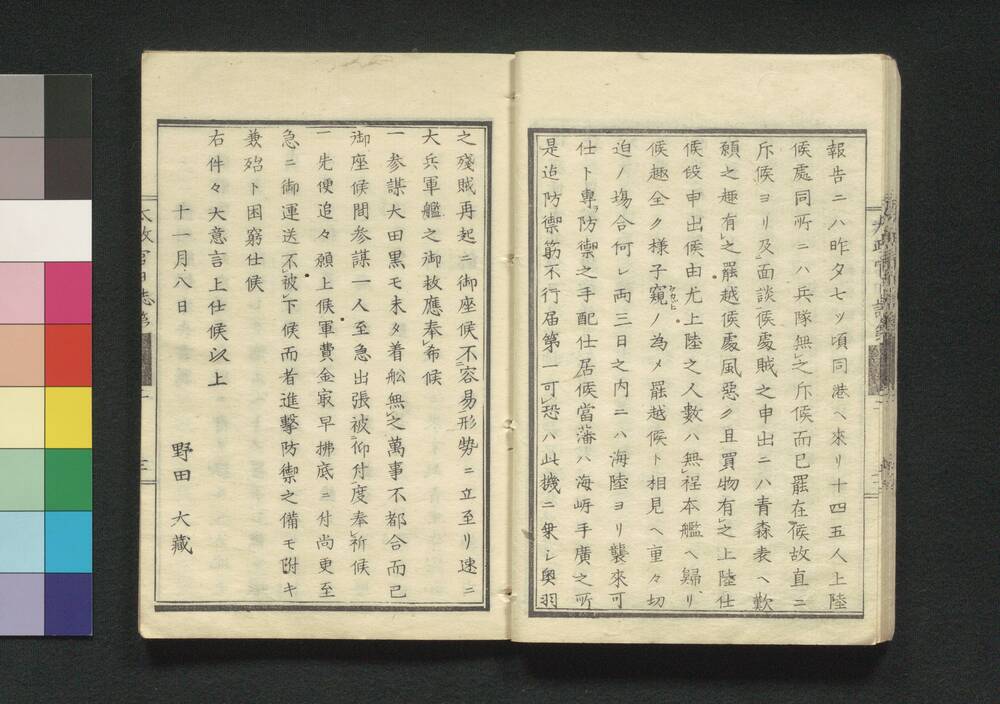 報告ニハ昨夕七ツ頃同港ヘ來リ十四五人上陸
候處同所ニハ兵隊無之斥候而已罷在候故直ニ
斥候ヨリ及面談候處賊之申出ニハ青森表ヘ歎
願之趣有之罷越候處風惡ク且買物有之上陸仕
候段申出候由尤上陸之人數ハ無程本艦ヘ歸リ
候趣全ク樣子窺ノ為メ罷越候ト相見ヘ重々切
迫ノ場合何レ兩三日之内ニハ海陸ヨリ襲來可
仕ト專防禦之手配仕居候當藩ハ海岸手廣之所
是迠防禦筋不行届第一可恐ハ此機ニ乗シ奥羽
之殘賊再起ニ御座候不容易形勢ニ立至リ速ニ
大兵軍艦之御救應奉希候
一 参謀大田黒モ未タ着舩無之萬事不都合而已
御座候間参謀一人至急出張被仰付度奉祈候
一 先便追々願上候軍費金㝡早拂底ニ付尚更至
急ニ御運送不被下候而者進擊防禦之備モ附キ
兼殆ト困窮仕候
右件々大意言上仕候以上
十一月八日
野田 大藏